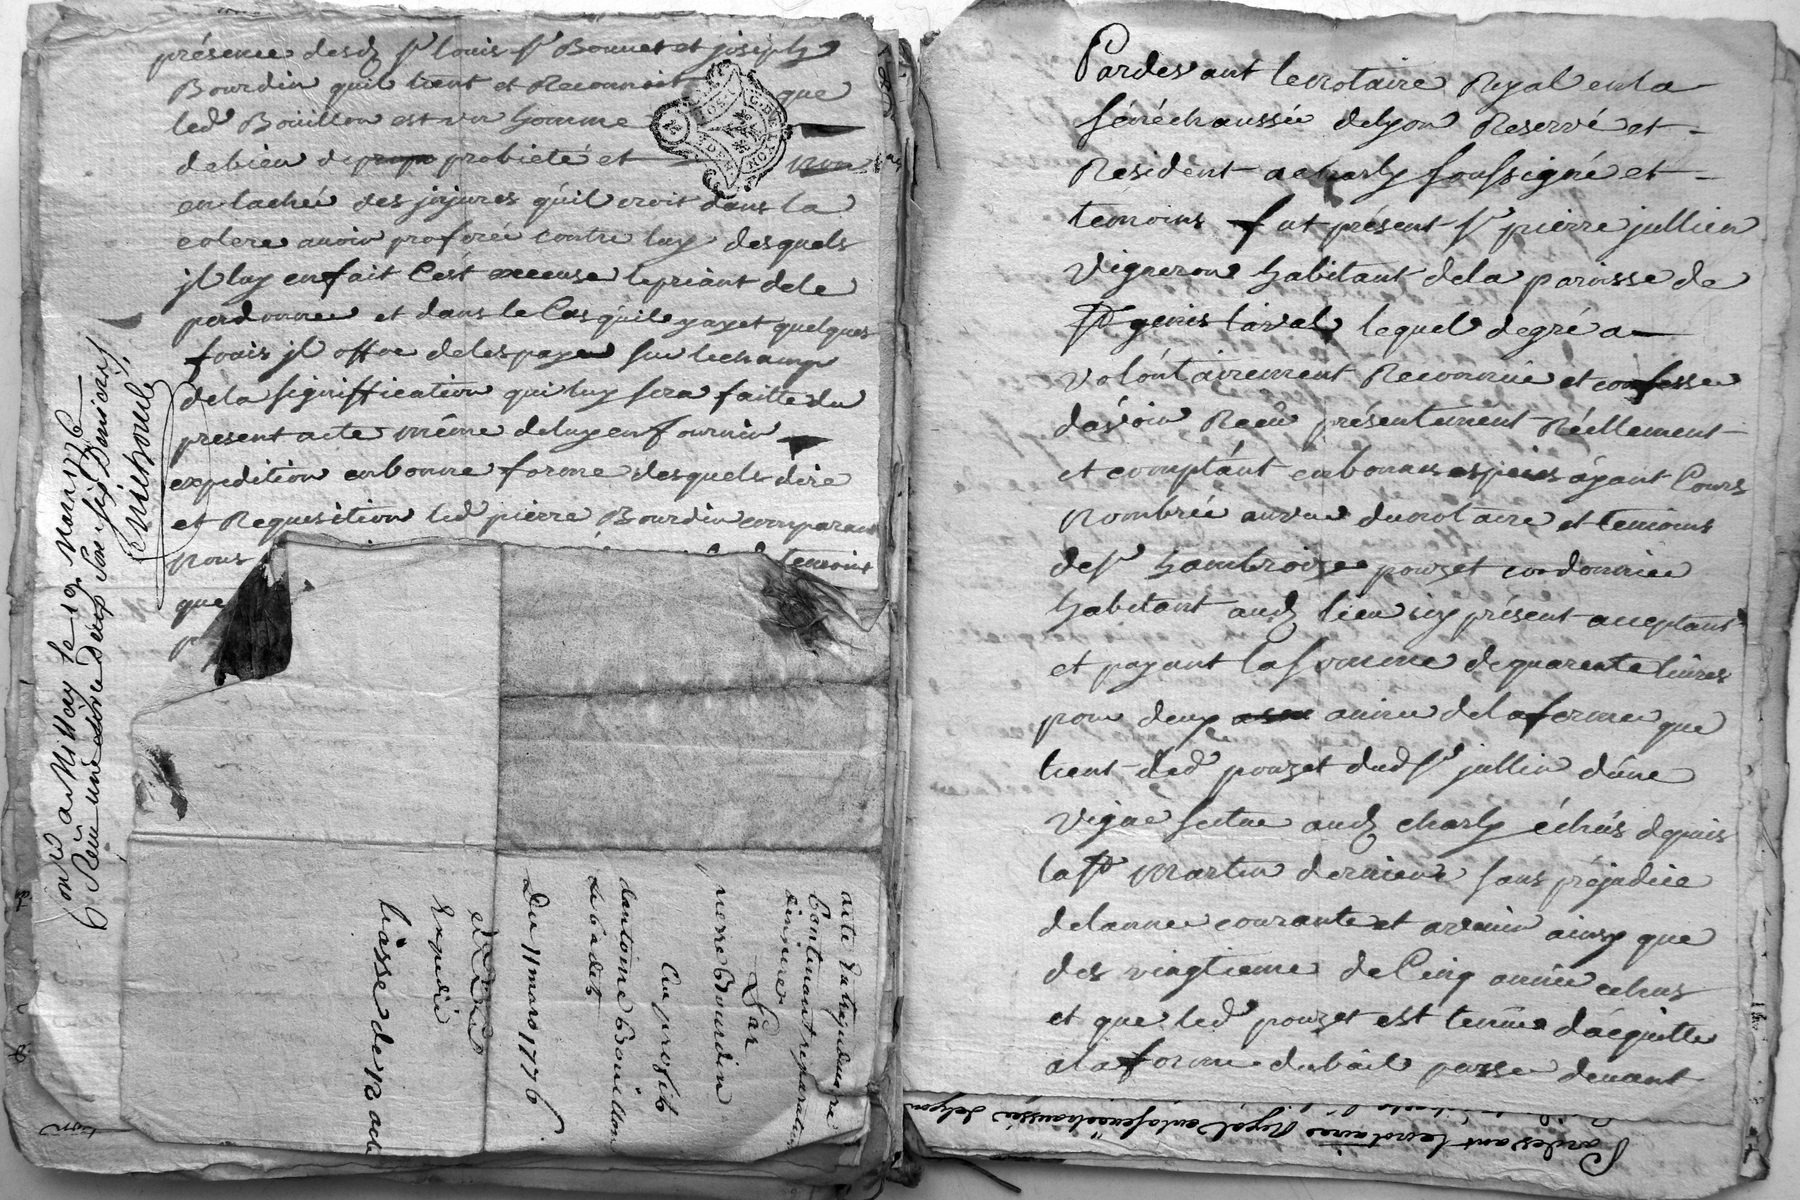 présence desd. sr louis sr Bonnet et joseph
Bourdin qu'il tient et Reconnoit que
led. Boüillon est un homme
de bien de probieté et non
entaché des jnjures qu'il croit dans la
colere avoir proferée contre luy desquels
jl luy en fait excuse le priant de le
pardonner et dans le Cas qu'il y ayet quelques
frais jl offre de les payer sur le champ
de la signiffication qui luy sera faitte du
present acte même de luy en fournir
expedition en bonne forme desquels dire
et Requisition led. pierre Bourdin comparant
nous temoins
que
Conlé a Millery le 19 mars 1776
Reçu
acte Extrajudiciaire
Contenant reparation
d'injures
Par
pierre Bourdin
Au profit
d'antoine Bouillon
du 11 mars 1776
Expedié
liasse de 12
Pardevant le notaire Royal en la
sénéchaussée de lyon Reservé et
Resident a charly soussigné et
temoins fut présent sr pierre jullien
vigneron habitant de la paroisse de
st genis laval lequel de gré a
volóntairement Reconnue et confesse
d'avoir Reçu présentement Réellement
et comptánt en bonnes espéces áyant Cours
Nombrée au vue du notaire et temoins
de sr hambroize pouzet cordonnier
habitant aud. lieu icy présent acceptant
et payant la somme de quarente livres
pour deux année de la ferme que
tient led. pouzet dud. sr jullien d'une
vigne scitue aud. charly échús depuis
la st martin dernier sans préjudice
de lanneé courante et avenir ainsy que
des vingtieme de Cinq année echus
et que led. pouzet est tenue d'acquitter
a la forme du bail passé devant
Pardevant le notaire Royal en la sénéchaussée de lyon